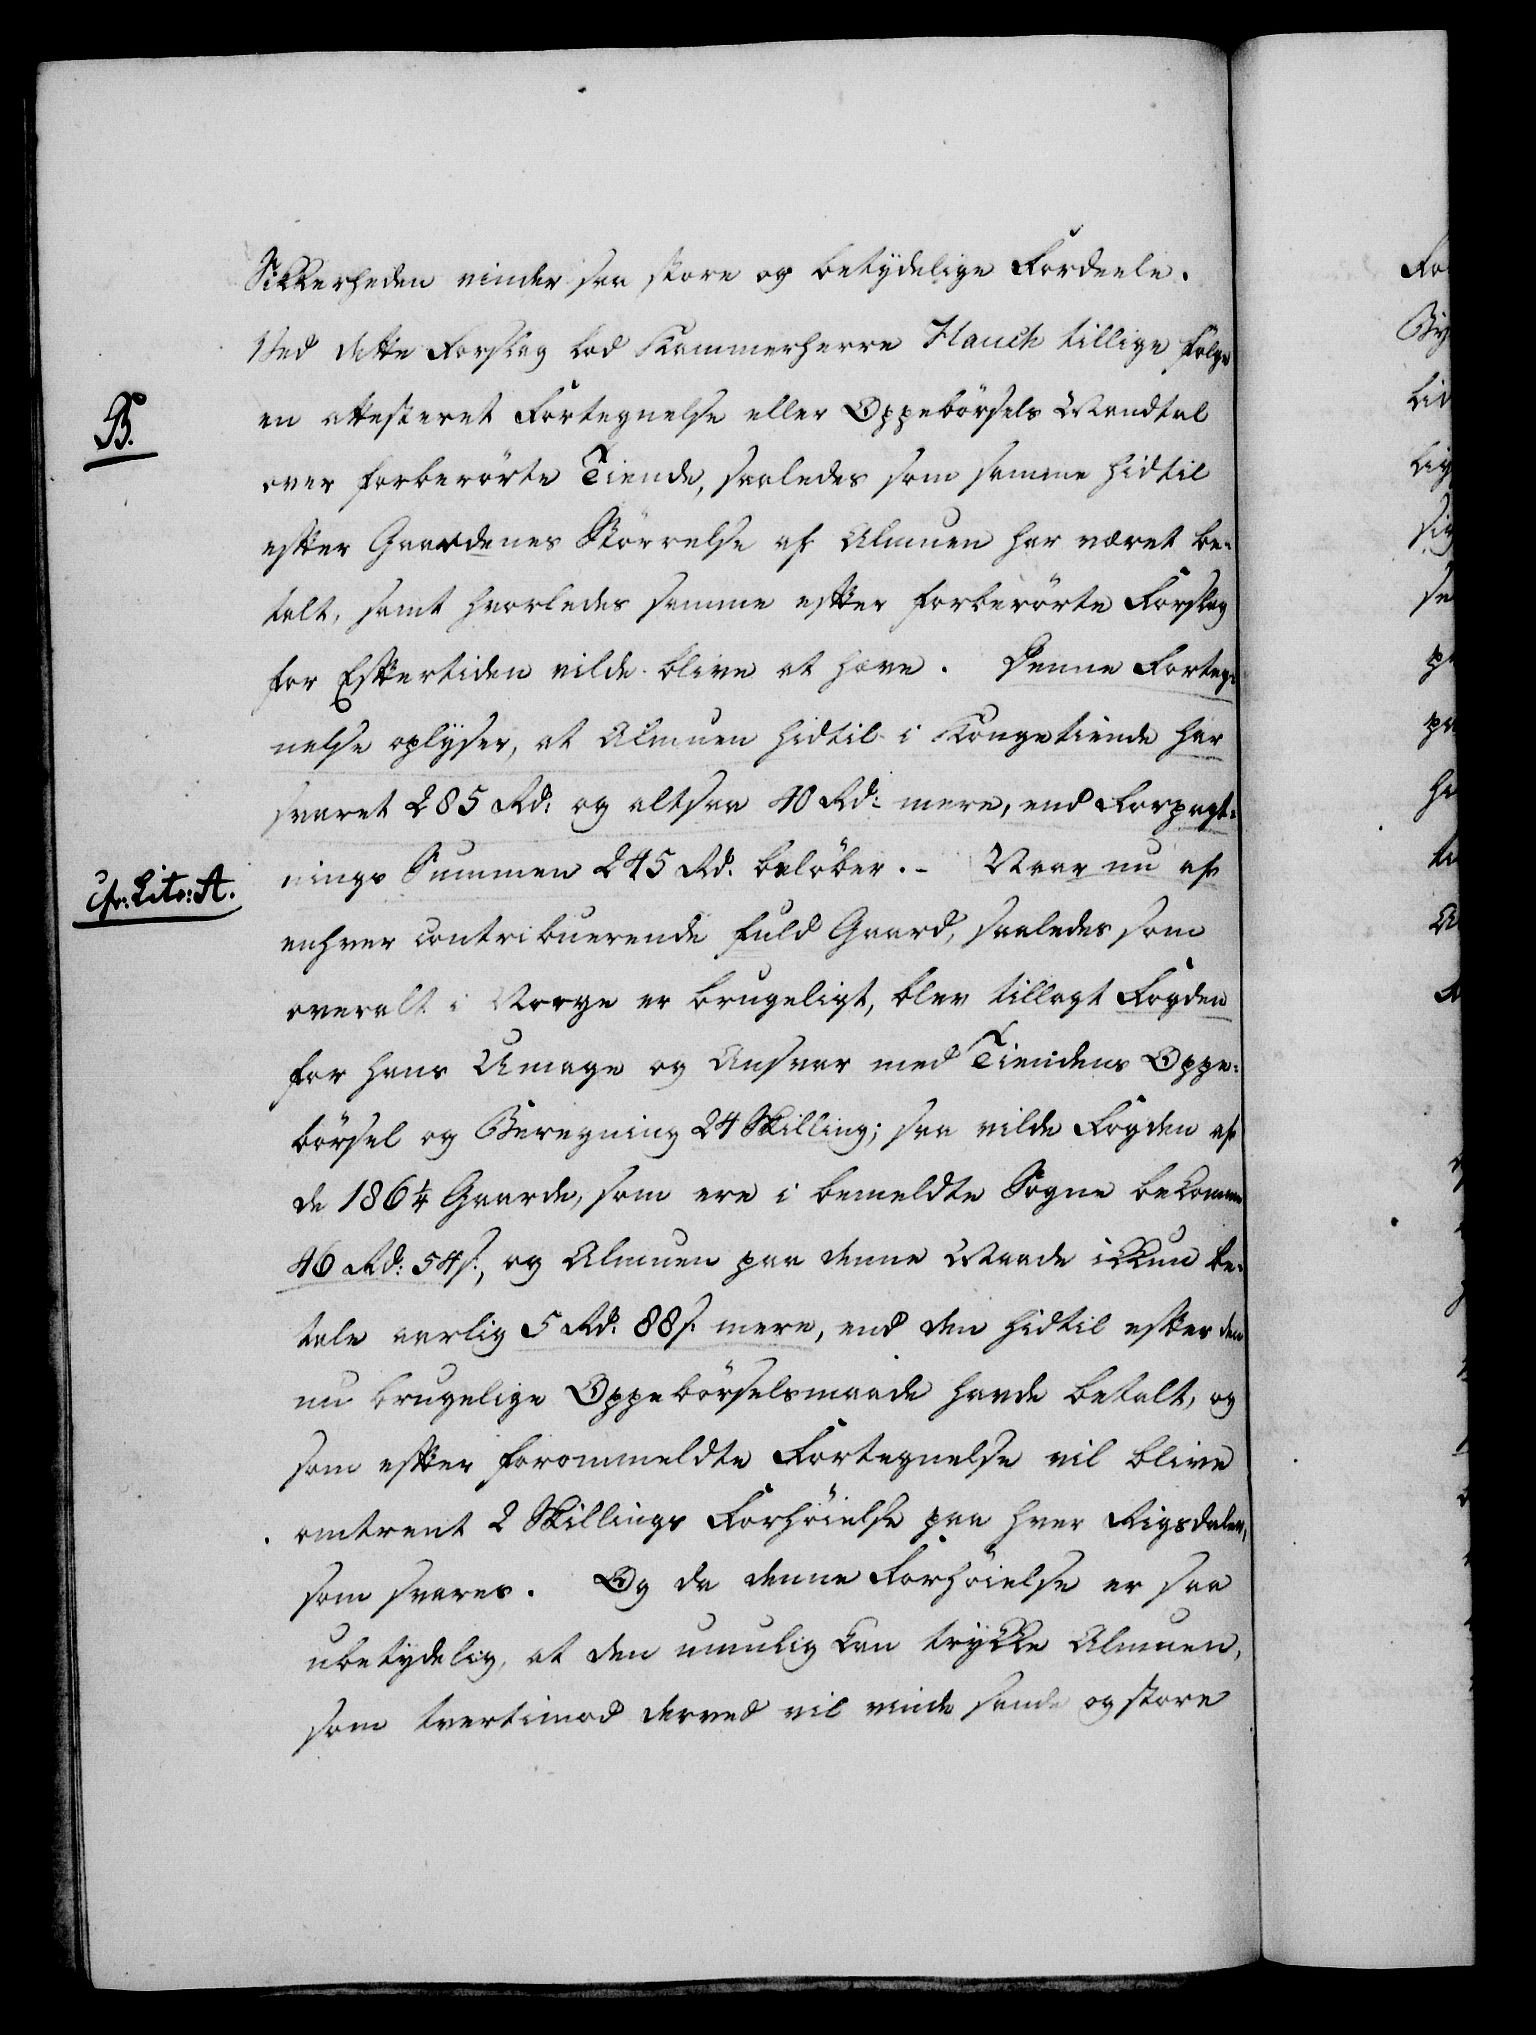 Sikkerheden vinder saa store og betydelige Fordeele.
Ved dette Forslag lod Kammerherre Hauch tillige følge
B.
en attesteret Fortegnelse eller Oppebörsels Mandtal
over forberörte Tiende, saaledes som samme hidtil
efter Gaardenes Störrelse af Almuen har været be-
talt, samt hvorledes samme efter forberörte Forslag
for Eftertiden vilde blive at hæve. Denne Forteg-
nelse oplyser, at Almuen hidtil i Kongetiende har
svaret 285 Rd: og altsaa 40 Rd: mere, end Forpagt-
cfr: Litr: A.
nings Summen 245 Rd. belöber. - Naar nu af
enhver contribuerende fuld Gaard, saaledes som
overalt i Norge er brugeligt, blev tillagt Fogden
for hans Umage og Ansvar med Tiendens Oppe-
börsel og Beregning 24 Skilling; saa vilde Fogden af
de 186 1/4 Gaarde, som ere i bemeldte Sogne bekomme
46 Rd: 54 s., og Almuen paa denne Maade ikkun be-
tale aarlig 5 Rd. 88 s. mere, end den hidtil efter den
nu brugelige Oppebörselsmaade havde betalt, og
som efter forommeldte Fortegnelse vil blive
omtrent 2 Skillings Forhöielse paa hver Rigsdaler,
som svares. Og da denne Forhöielse er saa
ubetydelig, at den umulig kan trykke Almuen,
som tvertimod derved vil vinde sande og store